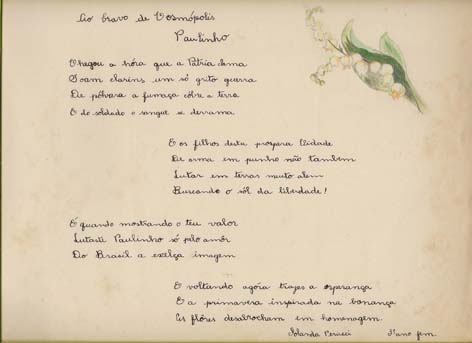 Ao bravo de Cosmópolis
Paulinho
Chegou a hóra que a Patria clama
Soam clarins um só grito guerra
De pólvora a fumaça cóbre a terra
E do soldado o sangue se derrama
E os filhos desta prospera Cidade
De arma em punho vão tambem
Lutar em terras muito alem
Buscando o sól da liberdade!
E quando mostrando o teu valor
Lutaste Paulinho só pelo amôr
Do Brasil a excelça imagem
E voltando agora trazes a esperança
E a primavera inspirada na bonança
As flôres desabrocham em homenagem.
Iolanda 3º ano fem.